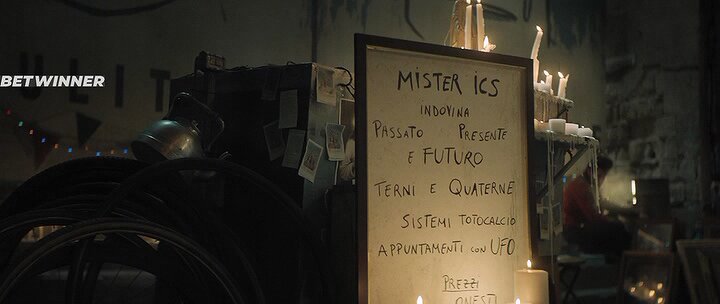 BETWINNER
ULIT
MISTER ICS
INDOVINA
PASSATO PRESENTE
E FUTURO
TERNI E QUATERNE
SISTEMI TOTOCALCIO
APPUNTAMENTI CON UFO
PREZZI
ONESTI